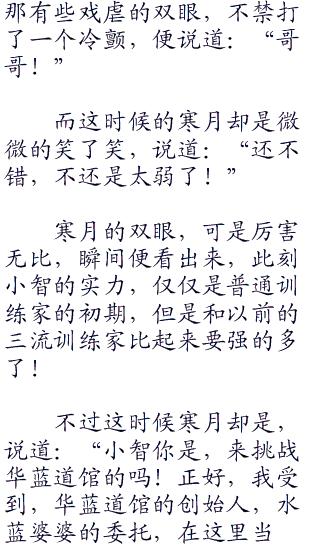 那有些戏虐的双眼，不禁打
了一个冷颤，便说道：“哥
哥！”
而这时候的寒月却是微
微的笑了笑，说道：“还不
错，不还是太弱了！”
寒月的双眼，可是厉害
无比，瞬间便看出来，此刻
小智的实力，仅仅是普通训
练家的初期，但是和以前的
三流训练家比起来要强的多
了！
不过这时候寒月却是，
说道：“小智你是，来挑战
华蓝道馆的吗！正好，我受
到，华蓝道馆的创始人，水
蓝婆婆的委托，在这里当